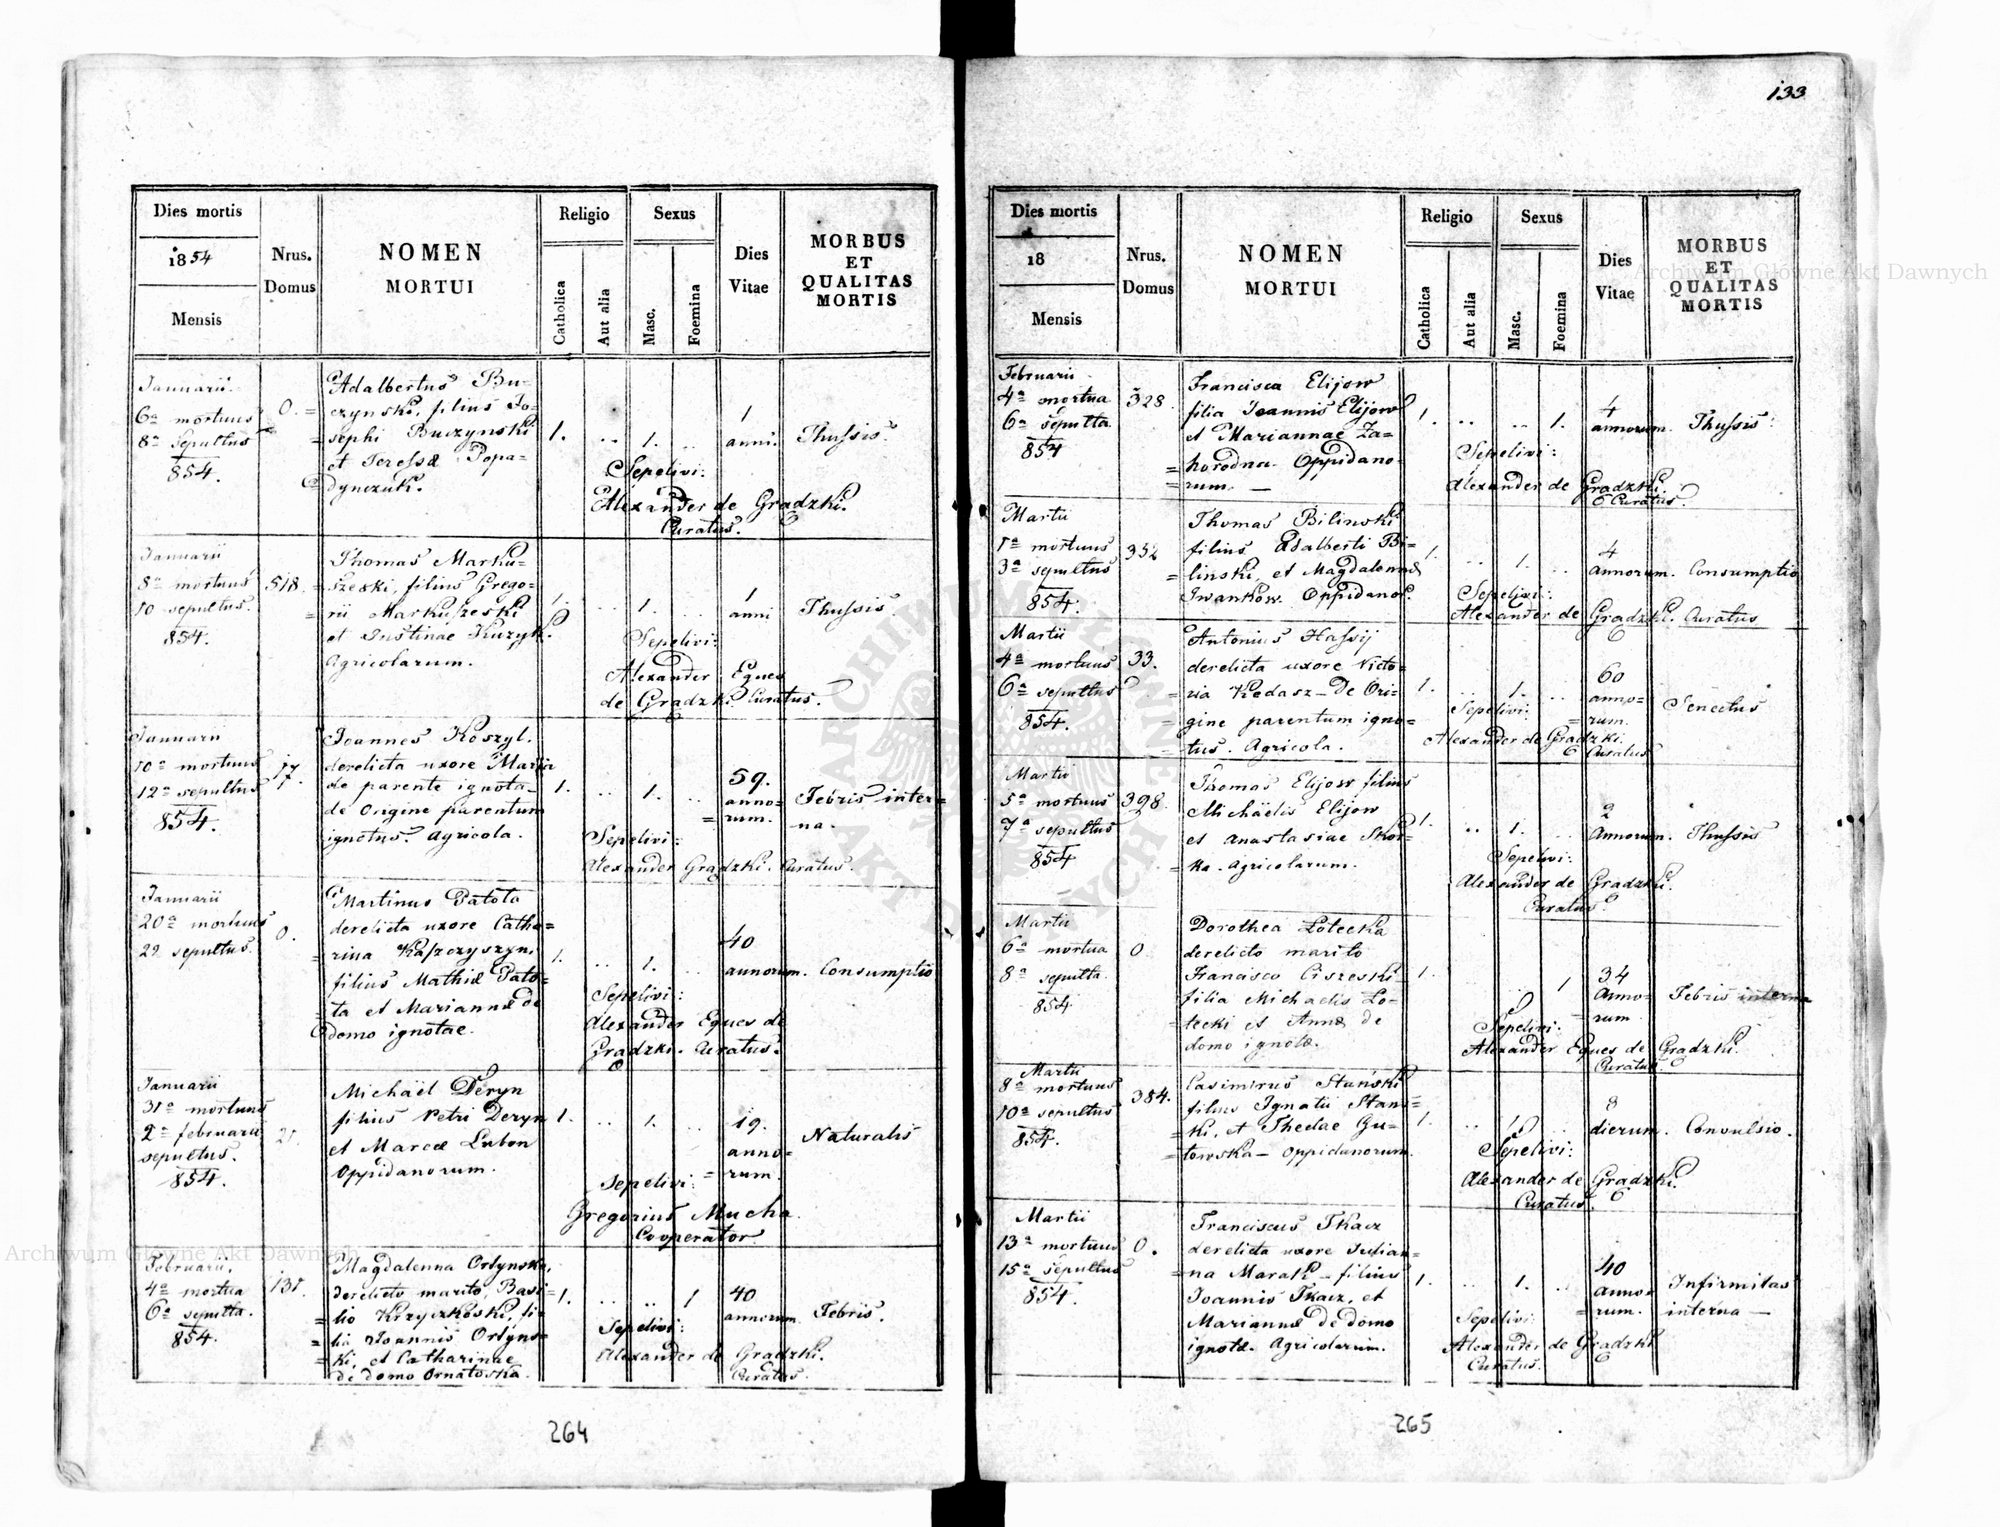 133
Dies mortis
1854
Mensis
Nrus.
Domus
NOMEN
MORTUI
Religio
Catholica
Aut alia
Sexus
Masc.
Foemina
Dies
Vitae
MORBUS
ET
QUALITAS
MORTIS
Januarii
6a mortuus
8a Sepultus
854.
0.
Adalbertus Bu-
czynski, filius Jo-
sephi Buczynski
et Teressæ Popa-
dynczuk.
1. .. 1. ..
1
anni.
Thussis.
Sepelivi:
Alexander de Gradzki.
Curatus.
Januarii
8a mortuus
10 sepultus.
854.
518.
Thomas Marku-
szeski, filius Grego-
rii Markuszeski
et Justinae Kuzyk.
Agricolarum.
1. .. 1. ..
1
anni
Thussis
Sepelivi:
Alexander Eques
de Gradzki. Curatus.
Januarii
10a mortuus
12a sepultus
854.
17.
Joannes Koszyl.
derelicta uxore Maria
de parente ignota
de Origine parentum
ignotus. Agricola.
1. .. 1. ..
59.
anno-
rum.
Febris inter-
na.
Sepelivi:
Alexander Gradzki. Curatus.
Januarii
20a mortuus
22 sepultus.
0.
Martinus Patota
derelicta uxore Catha-
rina Kaszczyszyn,
filius Mathiæ Pato-
ta et Mariannæ de
domo ignotae.
1. .. 1. ..
40
annorum.
Consumptio
Sepelivi:
Alexander Eques de
Gradzki. Curatus.
Januarii
31a mortuus
2a februarii
sepultus.
854.
Michaël Deryn
filius Petri Deryn
et Marcæ Lubon
Oppidanorum.
1. .. 1. ..
19.
anno-
rum.
Naturalis
Sepelivi:
Gregorius Mucha
Cooperator
Februarii.
4a mortua
6a sepulta.
854.
131.
Magdalenna Orlynska,
derelicto marito, Basi-
lio Krzyczkoski, fi-
lia Joannis Orlyns-
ki, et Catharinae
de domo Ornatoska.
1. .. .. 1
40
annorum
Febris.
Sepelivi:
Alexander de Gradzki.
Curatus.
264
Dies mortis
18
Mensis
Nrus.
Domus
NOMEN
MORTUI
Religio
Catholica
Aut alia
Sexus
Masc.
Foemina
Dies
Vitae
MORBUS
ET
QUALITAS
MORTIS
Februarii
4a mortua
6a sepulta.
854
328.
Francisca Elijow
filia Joannis Elijow
et Mariannae Za-
horodna. Oppidano-
rum. —
1. .. .. 1.
4
annorum.
Thussis.
Sepelivi:
Alexander de Gradzki.
Curatus.
Martii
1a mortuus
3a sepultus
854.
332
Thomas Bilinski
filius Adalberti Bi-
linski, et Magdalennæ
Iwankow. Oppidanor.
1. .. 1. ..
4
annorum.
Consumptio
Sepelivi:
Alexander de Gradzki. Curatus
Martii
4a mortuus
6a sepultus
854.
33.
Antonius Hassij
derelicta uxore Victo-
ria Kedasz — De Ori-
gine parentum igno-
tus. Agricola.
1. .. 1. ..
60
anno-
rum.
Senectus
Sepelivi:
Alexander de Gradzki.
Curatus
Martii
5a mortuus
7a sepultus
854
398.
Thomas Elijow filius
Michäelis Elijow
et Anastasiae Skor-
ka. Agricolarum.
1. .. 1. ..
2
Annorum.
Thussis
Sepelivi:
Alexander de Gradzki.
Curatus.
Martii
6a mortua
8a sepulta.
854
0
Dorothea Lotecka
derelicto marito
Francisco Ciszeski
filia Michaelis Lo-
tecki et Annæ de
domo ignotæ.
1. .. .. 1
34
Anno-
rum
Febris interna
Sepelivi:
Alexander Eques de Gradzki.
Curatus
Martii
8a mortuus
10a sepultus
854.
384.
Casimirus Stanski
filius Ignatii Stans-
ki, et Theclae Gu-
towska — Oppidanorum.
1. .. 1. ..
8
dierum.
Convulsio.
Sepelivi:
Alexander de Gradzki.
Curatus.
Martii
13a mortuus
15a sepultus
854.
0.
Franciscus Tkacz
derelicta uxore Julian-
na Marak — filius
Joannis Tkacz, et
Mariannæ de domo
ignotæ. Agricolarum.
1. .. 1. ..
40
anno-
rum.
Infirmitas
interna —
Sepelivi:
Alexander de Gradzki
Curatus.
265
Archiwum Główne Akt Dawnych
Archiwum Główne Akt Dawnych
ARCHIWUM GŁÓWNE
AKT DAWNYCH